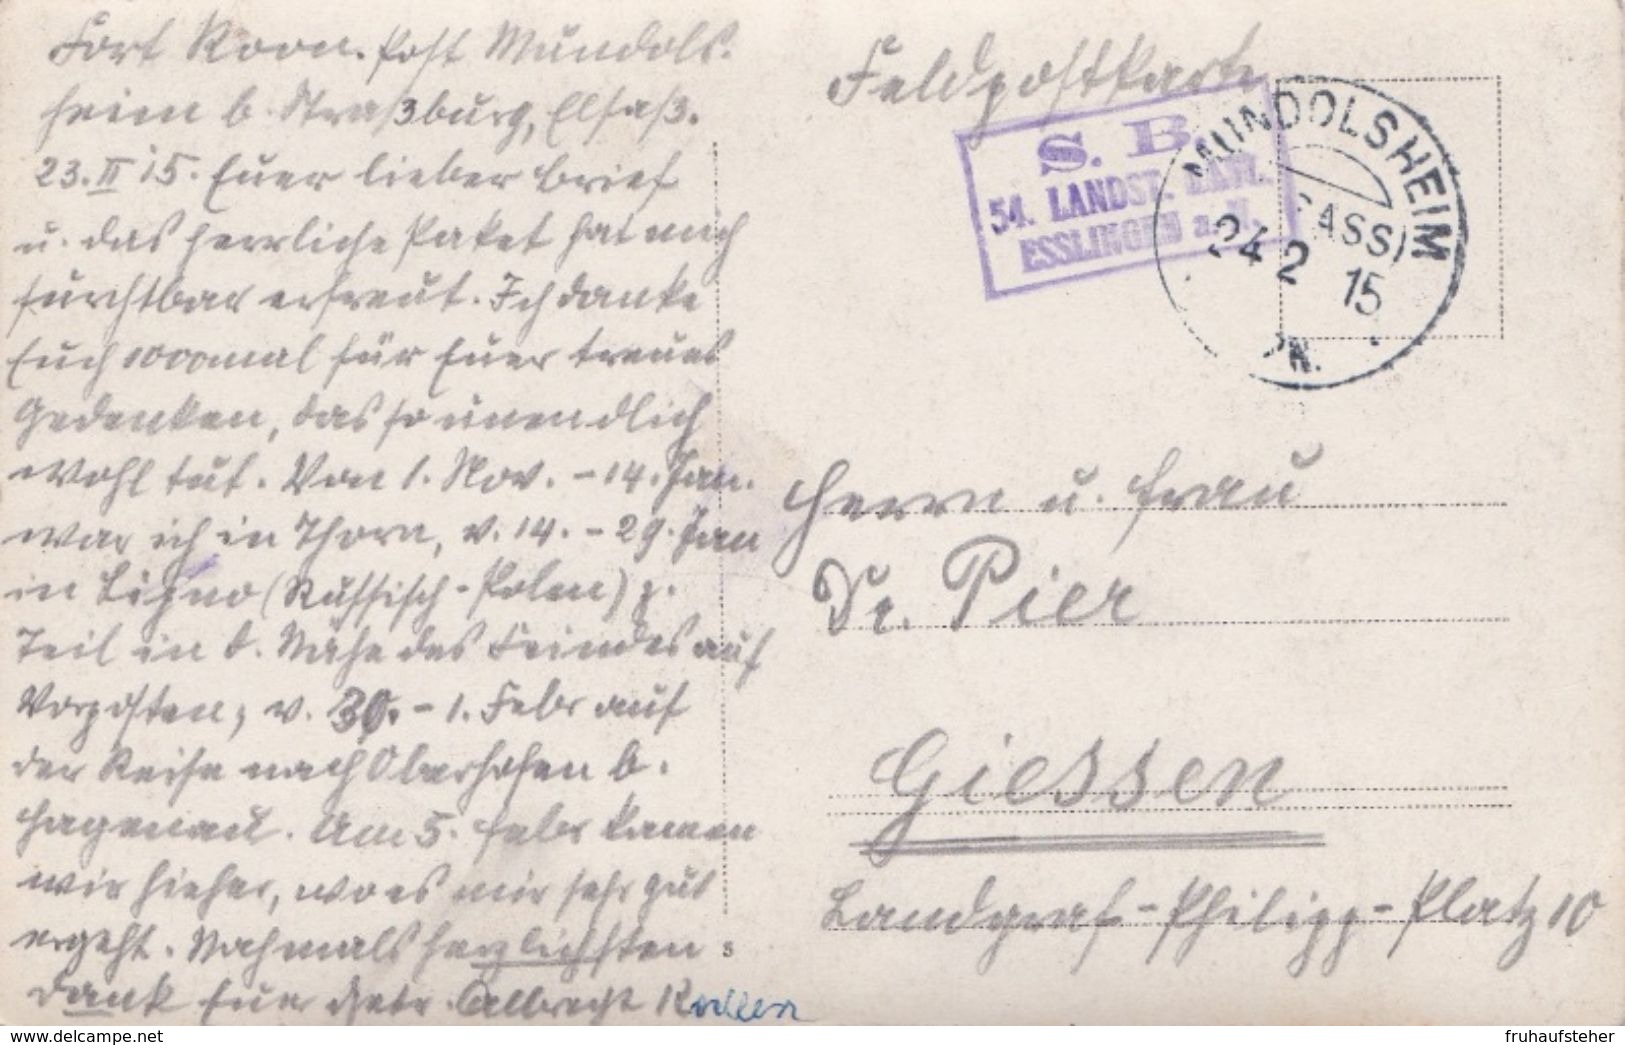 Fort Roon. Post Mundols-
heim b. Straßburg, Elsaß.
23. II 15. Euer lieber Brief
u. das herrliche Paket hat mich
furchtbar erfreut. Ich danke
Euch 1000mal für Euer treues
Gedenken, das so unendlich
wohl tut. Von 1. Nov. - 14. Jan.
war ich in Thorn, v. 14. - 29. Jan
in Lipno (Russisch-Polen) z.
Teil in d. Nähe des Feindes auf
Vorposten, v. 30. - 1. Febr auf
der Reise nach Oberhofen b.
Hagenau. Am 5. Febr kamen
wir hieher, wo es mir sehr gut
ergeht. Nochmals herzlichsten
Dank Euer Albrecht
Feldpostkarte
S. B.
54. LANDST. BATL.
ESSLINGEN a. N.
MUNDOLSHEIM
24 2 15
Herrn u. Frau
Dr. Pier
Giessen
Landgraf-Philipp-Platz 10
fruhaufsteher